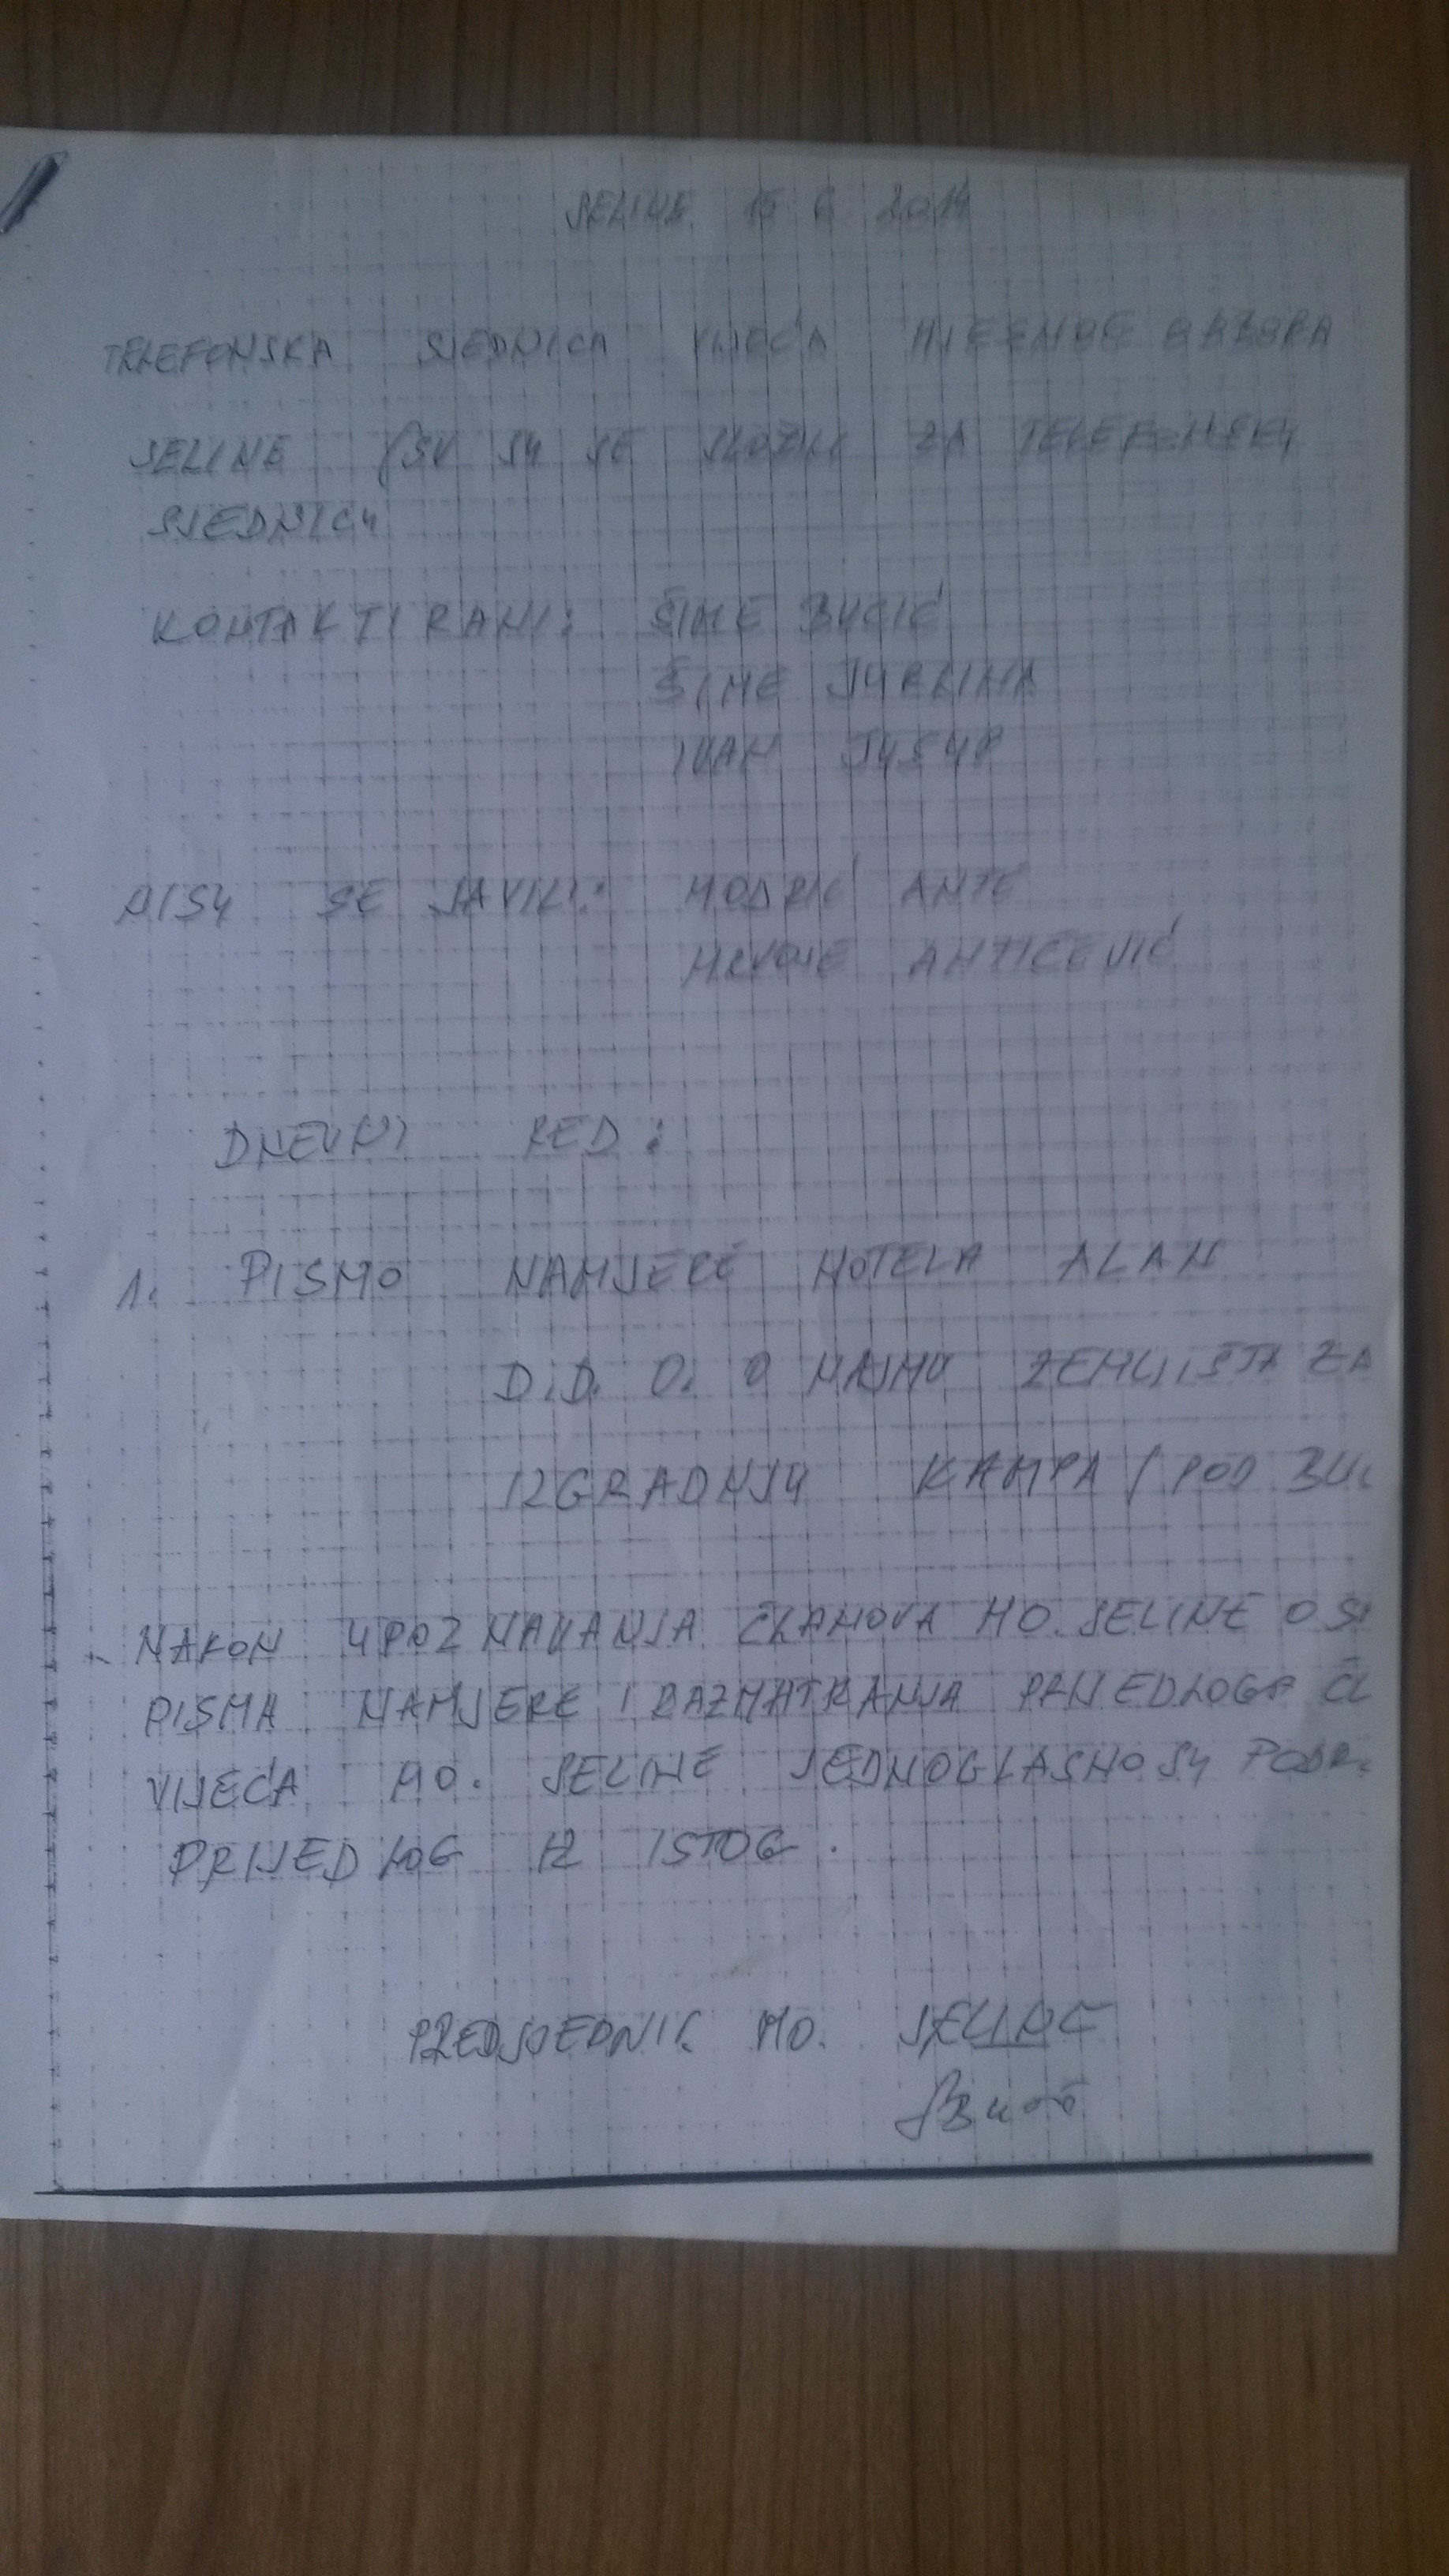 SELINE 15 6 2014
TELEFONSKA SJEDNICA VIJEĆA MJESNOG ODBORA
SELINE (SVI SU SE SLOŽILI ZA TELEFONSKU
SJEDNICU
KONTAKTIRANI: ŠIME BUCIĆ
ŠIME JURLINA
IVAN JUSUP
NISU SE JAVILI: MODRIĆ ANTE
HRVOJE ANTIČEVIĆ
DNEVNI RED:
1. PISMO NAMJERE HOTELA ALAN
D.D. O. O NAJMU ZEMLJIŠTA ZA
IZGRADNJU KAMPA / POD
NAKON UPOZNAVANJA ČLANOVA MO. SELINE O
PISMA NAMJERE I RAZMATRANJA PRIJEDLOGA
VIJEĆA MO. SELINE JEDNOGLASNO SU
PRIJEDLOG IZ ISTOG.
PREDSJEDNIK MO. SELINE